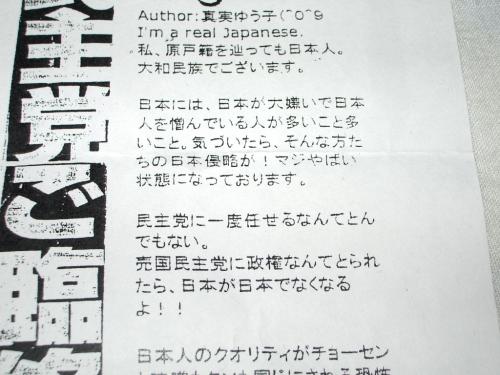 Author:真実ゆう子(^0^9
I'm a real Japanese.
私、原戸籍を辿っても日本人。
大和民族でございます。
日本には、日本が大嫌いで日本
人を憎んでいる人が多いこと多
いこと。気づいたら、そんな方た
ちの日本侵略が!マジやばい
状態になっております。
民主党に一度任せるなんてとん
でもない。
売国民主党に政権なんてとられ
たら、日本が日本でなくなる
よ!!
日本人のクオリティがチョーセン